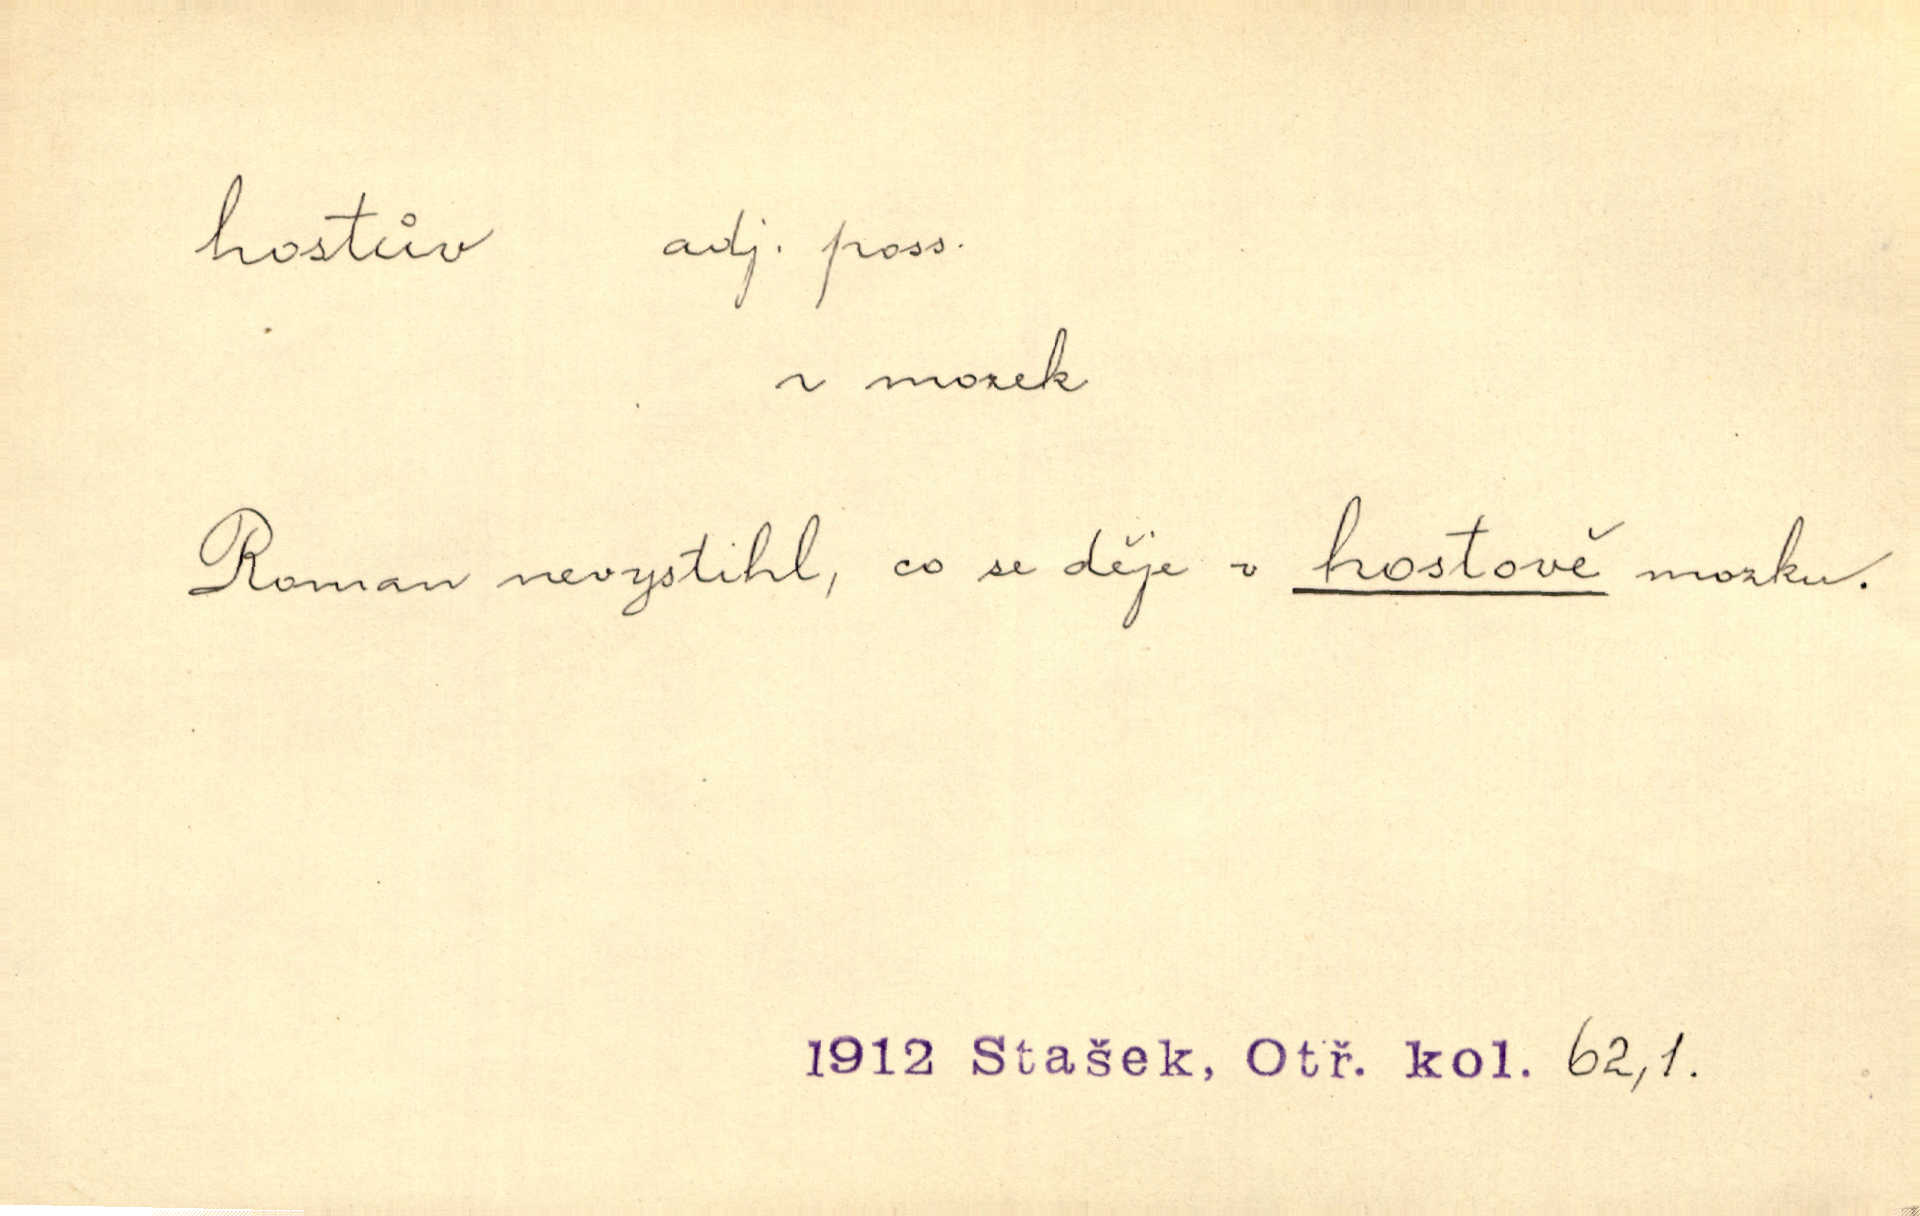 hostův adj. poss.
v mozek
Roman nevystihl, co se děje v hostově mozku.
1912 Stašek, Otř. kol. 62,1.